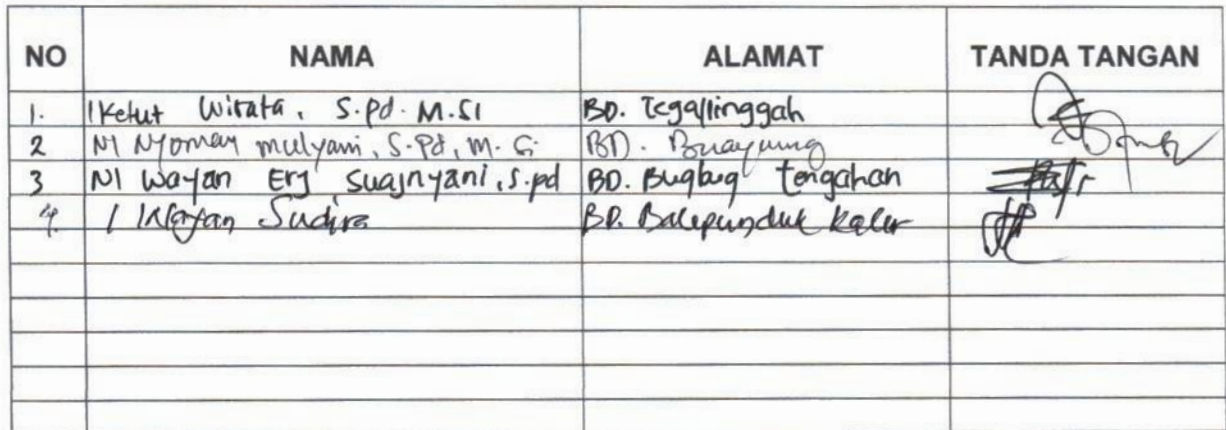 NO NAMA ALAMAT TANDA TANGAN
1. I Ketut Wirata, S.Pd. M.SI BD. Tegallinggah
2 NI Nyoman mulyani, S.Pd, M.Si BD.
3 NI Wayan Ery Suajnyani, S.pd BD. Bugbug tengahan
4. I Wayan Sudira BD. Balepunduk Kaler